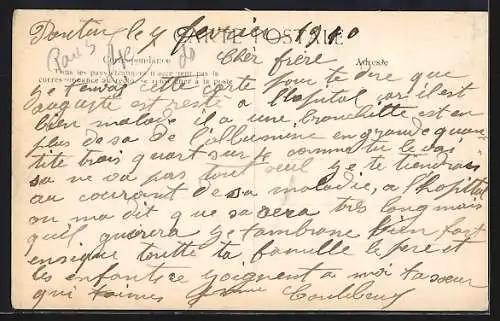 Pantin le 4 février 1910
CARTE POSTALE
Paris
Correspondance
Cher frère
Adresse
Tous les pays étrangers n'acceptent pas la
correspondance au recto se renseigner à la poste
je tenvoi cette carte pour te dire que
auguste est resté a l'hopital car il est
bien malade il a une bronchitte est en
plus de sa de l'albumine en grande quan
tité trois quart sur comme tu le vois
sa ne va pas tout seul je te tiendrais
au courant de sa maladie, a l'hopittal
on ma dit que sa sera très long mais
qu'il guérera je tembrasse bien fort
ensigue toutte ta famille le père et
les enfants ce joignent a moi ta sœur
qui taimes